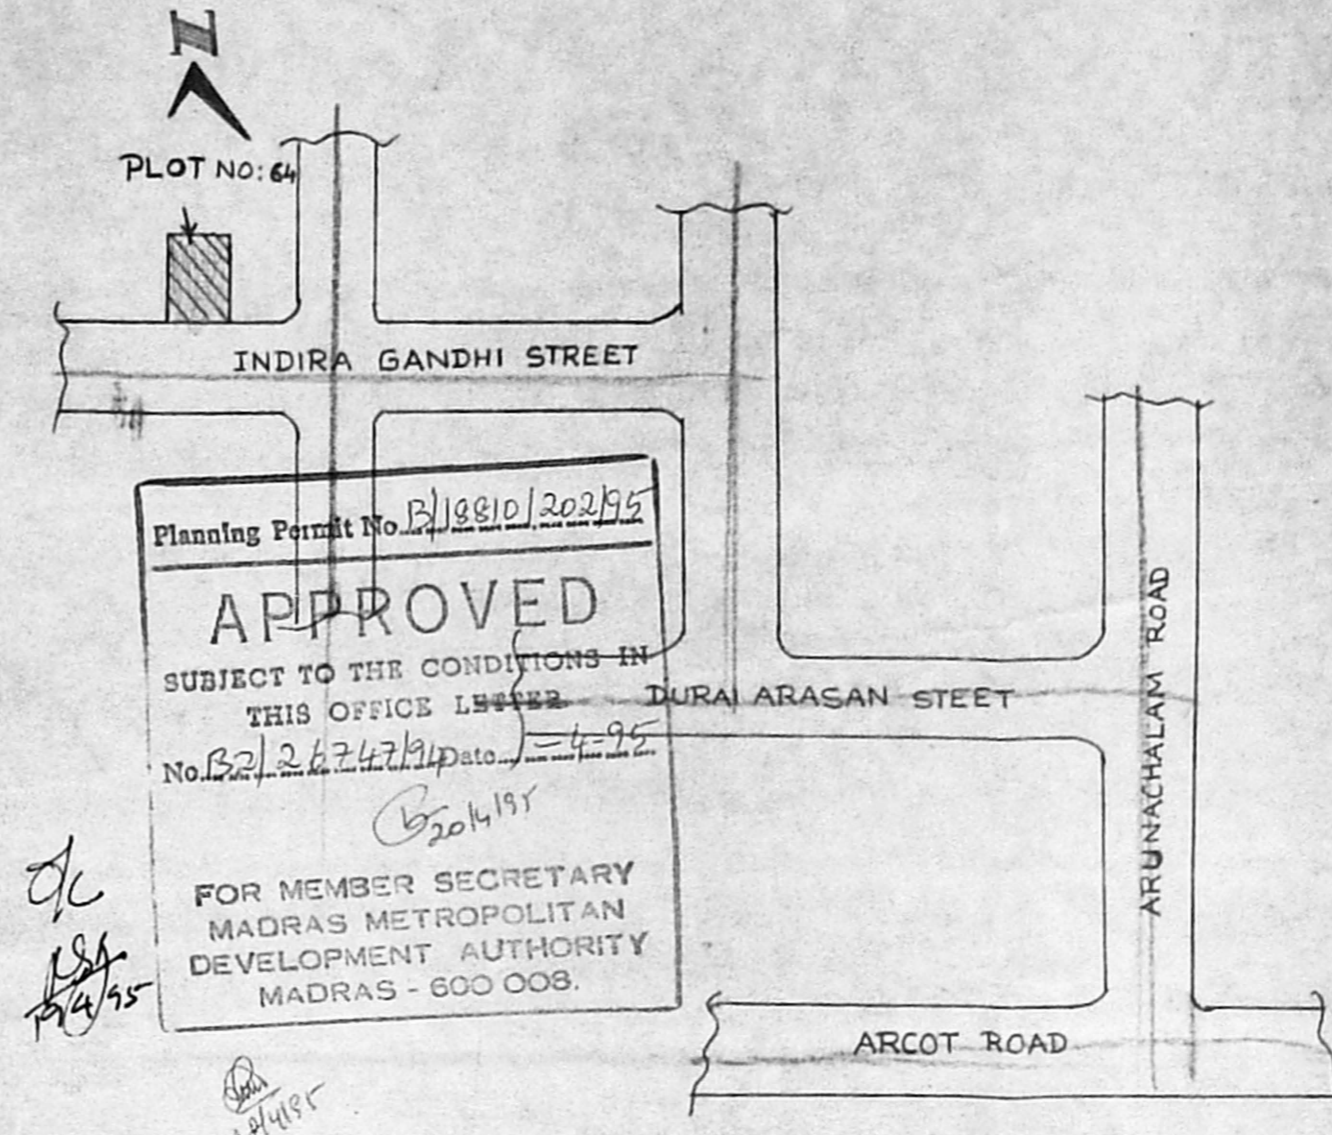 N
PLOT NO: 64
INDIRA GANDHI STREET
Planning Permit No. B/18810/202/95
APPROVED
SUBJECT TO THE CONDITIONS IN
THIS OFFICE LETTER
No. B2/26747/94 Date -4-95
20/4/95
FOR MEMBER SECRETARY
MADRAS METROPOLITAN
DEVELOPMENT AUTHORITY
MADRAS - 600 008.
DURAI ARASAN STEET
ARUNACHALAM ROAD
ARCOT ROAD
O/C
19/4/95